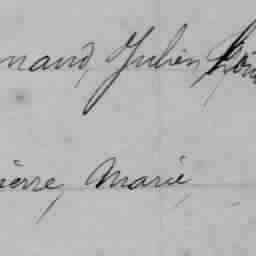 nand, Julien
ierre, Marie